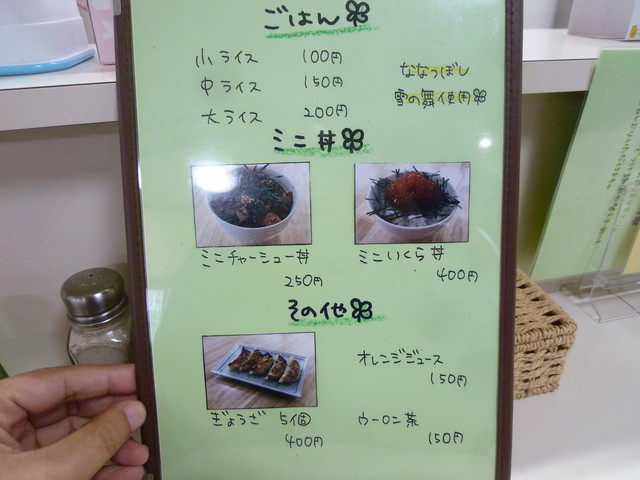 ごはん
小ライス 100円
中ライス 150円
大ライス 200円
ななつぼし
雪の舞使用
ミニ丼
ミニチャーシュー丼
250円
ミニいくら丼
400円
その他
ぎょうざ 5個
400円
オレンジジュース
150円
ウーロン茶
150円